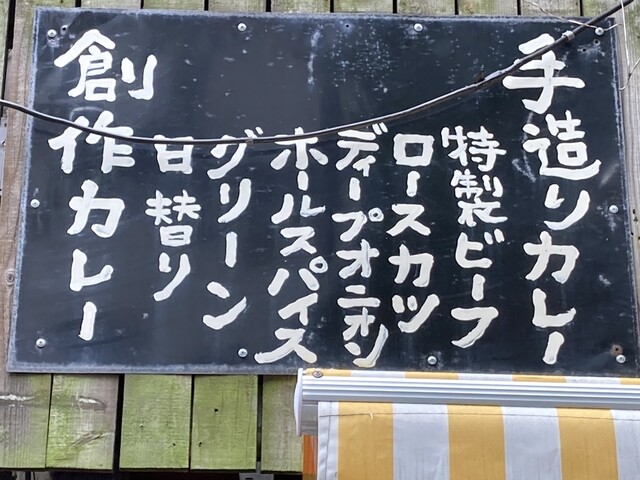 手造りカレー
特製ビーフ
ロースカツ
ディープオニオン
ホールスパイス
グリーン
日替り
創作カレー